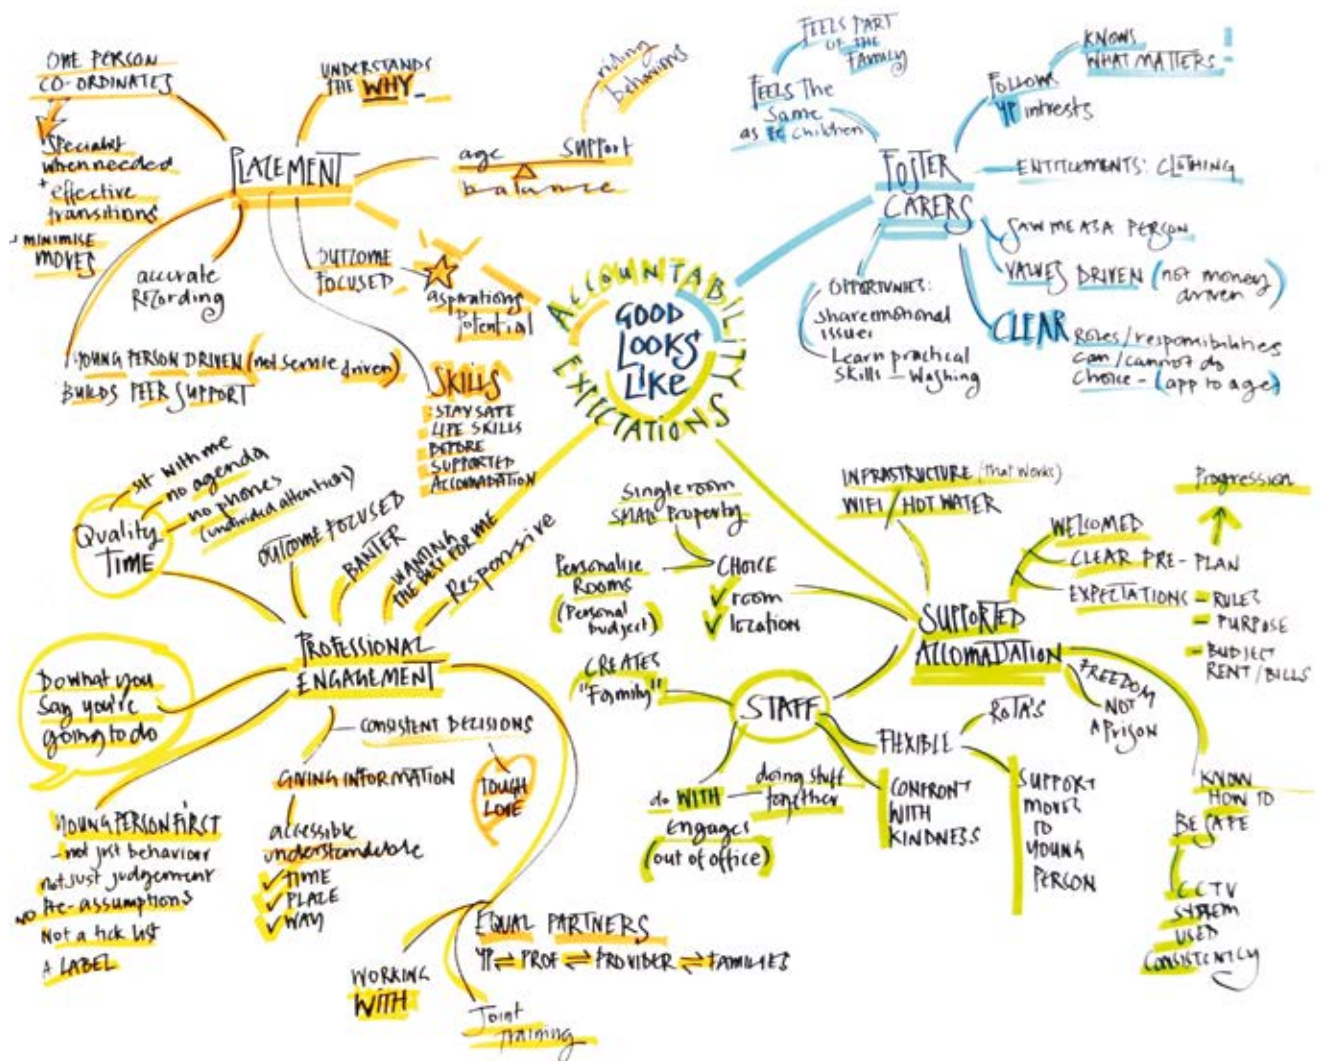 ACCOUNTABILITY
EXPECTATIONS
GOOD
LOOKS
LIKE
PLACEMENT
ONE PERSON
CO-ORDINATES
Specialist
when needed
+ effective
transitions
MINIMISE
MOVES
UNDERSTANDS
THE WHY
age support
balance
riding
behaviors
accurate
RECORDING
OUTCOME
FOCUSED
aspirations
Potential
YOUNG PERSON DRIVEN (not service driven)
BUILDS PEER SUPPORT
SKILLS
: STAY SAFE
LIFE SKILLS
BEFORE
SUPPORTED
ACCOMADATION
FOSTER
CARERS
FEELS PART
OF THE
FAMILY
FEELS The
Same
as children
FOLLOW
YP intrests
KNOWS
WHAT MATTERS
ENTITLEMENTS: CLOTHING
SAW ME AS A PERSON
VALUES DRIVEN (not money
driven)
CLEAR
Roles/responsibilities
can/cannot do
Choice - (app to age)
OPPORTUNIES:
share emotional
issues
Learn practical
skills - washing
PROFESSIONAL
ENGAGEMENT
Quality
TIME
sit with me
no agenda
no phones
(undivided attention)
OUTCOME FOCUSED
BANTER
WANTING
THE BEST FOR ME
Responsive
Do what you
Say you're
going to do
YOUNG PERSON FIRST
- not just behaviour
not just judgement
NO Pre-assumptions
Not a tick list
A LABEL
CONSISTENT DECISIONS
TOUGH
LOVE
GIVING INFORMATION
accessible
understandable
TIME
PLACE
WAY
WORKING
WITH
EQUAL PARTNERS
YP ⇌ PROF ⇌ PROVIDER ⇌ FAMILIES
Joint
Training
SUPPORTED
ACCOMADATION
INFRASTRUCTURE (that works)
WIFI / HOT WATER
Single room
SMALL Property
CHOICE
✓ room
✓ location
Personalise
ROOMS
(Personal
budject)
WELCOMED
CLEAR PRE-PLAN
EXPECTATIONS - RULES
- PURPOSE
- BUDJECT
RENT/BILLS
Progression
FREEDOM
NOT
A Prison
KNOW
HOW TO
BE SAFE
CCTV
SYSTEM
USED
CONSISTENTLY
STAFF
CREATES
"Family"
do WITH
doing stuff
together
engages
(out of office)
FLEXIBLE
ROTA'S
CONFRONT
WITH
KINDNESS
SUPPORT
MOVES
TO
YOUNG
PERSON